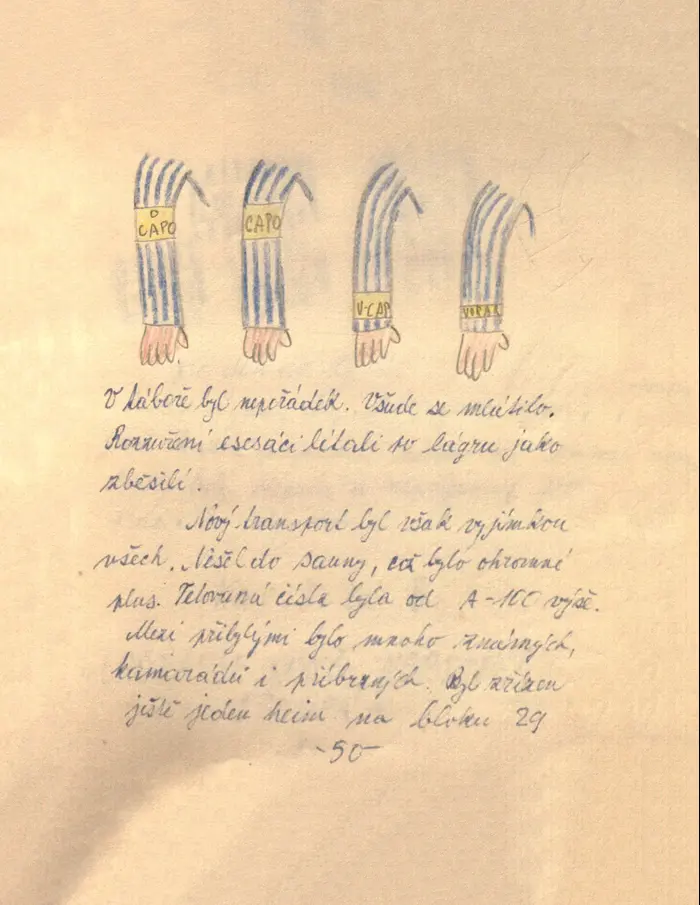 O
CAPO
CAPO
V-CAP
VORAR
V táboře byl nepořádek. Všude se mlátilo.
Rozzuření esesáci lítali po lágru jako
zběsilí.
Nový transport byl však vyjímkou
všech. Nešel do sauny, což bylo ohromné
plus. Tetovaná čísla byla od A-100 výše.
Mezi přibylými bylo mnoho známých,
kamarádů i příbuzných. Byl zřízen
ještě jeden heim na bloku 29
-50-